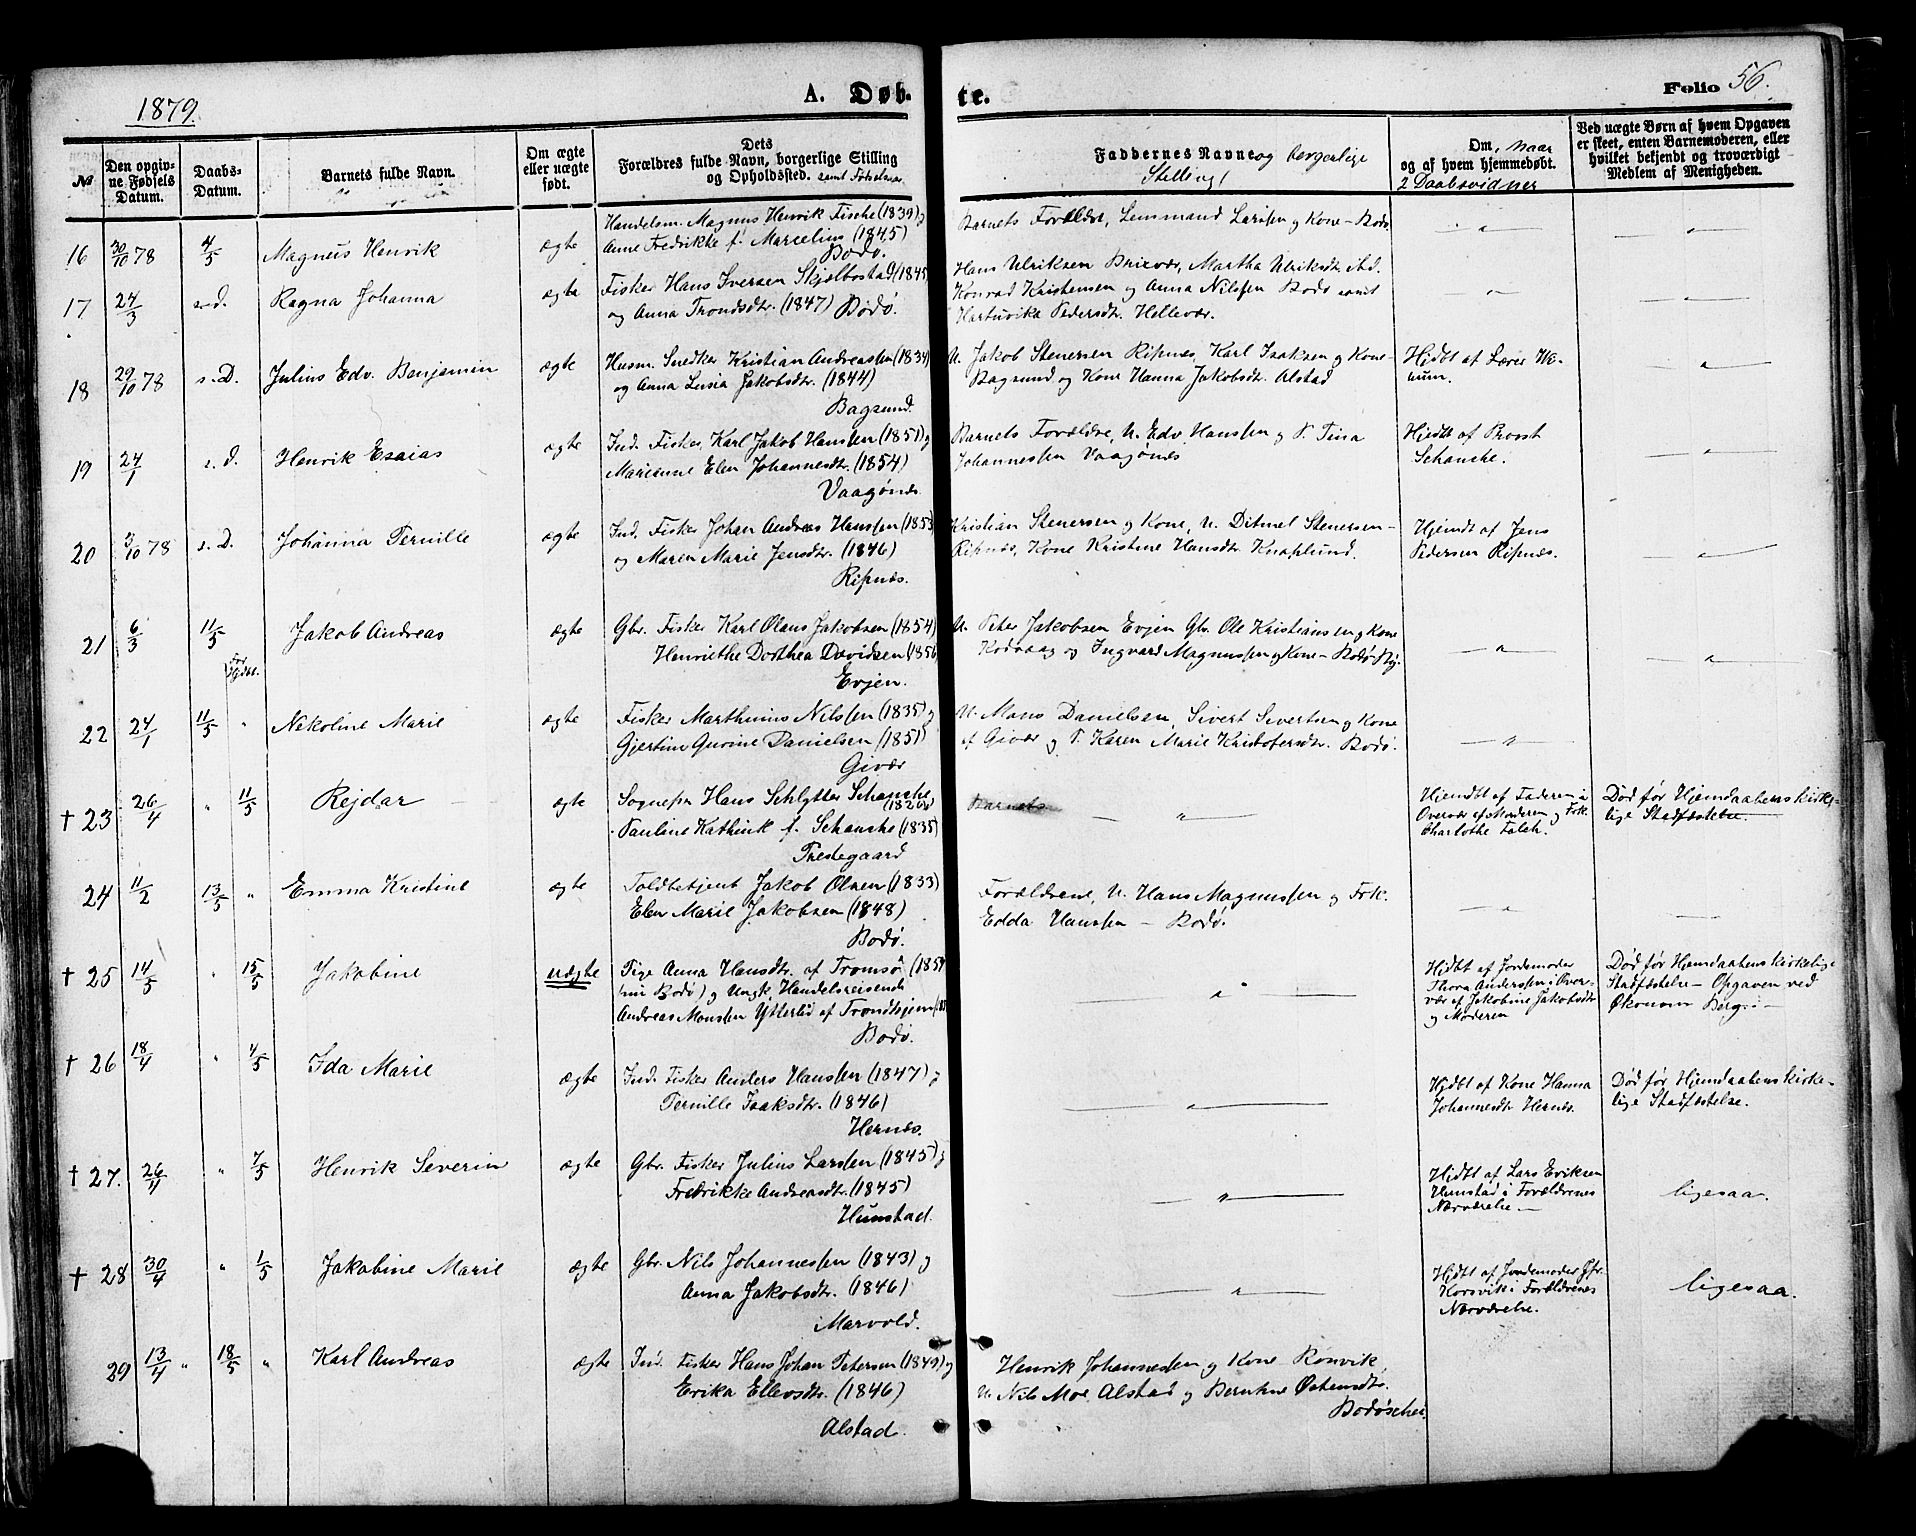 1879
A. Døb-
te.
Folio 56.
№
Den opgiv-
ne Fødsels
Datum.
Daabs-
Datum.
Barnets fulde Navn.
Om ægte
eller uægte
født.
Dets
Forældres fulde Navn, borgerlige Stilling
og Opholdssted. samt Fødselsaar
Faddernes Navne og borgerlige
Stilling
Om, naar
og af hvem hjemmedøbt.
2 Daabsvidner
Ved uægte Børn af hvem Opgaven
er skeet, enten Barnemoderen, eller
hvilket bekjendt og troværdigt
Medlem af Menigheden.
16 30/10 78 4/5 Magnus Henrik ægte
Handelsm. Magnus Henrik Fische (1839) og
Anne Fredrikke f. Marcelius (1845)
Bodø.
Barnets Forældre, Lensmand Larssen og Kone - Bodø
17 24/3 s. d. Ragna Johanna ægte
Fisker Hans Iversen Skjelbostad (1845)
og Anna Trondsdtr. (1847) Bodø.
Hans Ulriksen Brixvær, Martha Ulriksdtr. ibd.
Konrad Kristensen og Anna Nilssen Bodø samt
Hartuvika Pedersdtr. Hellevær.
18 29/10 78 s. D. Julius Edv. Benjamin ægte
Husm. Snedker Kristian Andreassen (1834)
og Anna Lusia Jakobsdtr. (1844)
Bagsund.
U. Jakob Stenersen Ripnes, Karl Isaksen og Kone -
Bagsund og Kone Hanna Jakobsdtr. Alstad
Hjdbt af Lærer We-
num.
19 24/1 s. d. Henrik Esaias ægte
Ind. Fisker Karl Jakob Hanssen (1851) og
Marianne Elen Johannesdtr. (1854)
Vaagønes.
Barnets Forældre, U. Edv. Hanssen og P. Tina
Johannessen Vaagønes
Hjdbt af Provst
Schanche.
20 3/10 78 s. D. Johanna Pernille ægte
Ind. Fisker Johan Andreas Hanssen (1853
og Maren Marie Jensdtr. (1846)
Ripnes.
Kristian Stenersen og Kone, U. Ditmel Stenersen -
Ripnes, Kone Kristine Hansdtr. Knaplund.
Hjemdt af Jens
Pedersen Ripnes.
21 6/3 11/5 Jakob Andreas ægte
Gbr. Fisker Karl Olaus Jakobsen (1854)
Henriethe Dorthea Davidsen (1856
Evjen.
U. Peter Jakobsen Evjen Gbr. Ole Kristiansen og Kone
Kodvaag og Ingvard Magnussen og Kone - Bodø By.
For
Hjdbt.
22 24/1 11/5 " Nikoline Marie ægte
Fisker Marthinius Nilssen (1835) og
Gjertine Gurine Danielsen (1851)
Givær
U. Mons Danielsen, Sivert Sivertsen og Kone
af Givær og P. Karen Marie Kristofersdtr. Bodø.
† 23 26/4 " 11/5 Rejdar ægte
Sognepr. Hans Schlytter Schanche
(1826)
Pauline Kathink f. Schanche (1835)
Prestegaard
Barnets
Hjemdt af Faderen i
Overvær af Moderen og Frk.
Charlothe Falch.
Død før Hjemdaabens kirke-
lige Stadfæstelse.
24 11/2 13/5 " Emma Kristine ægte
Toldbetjent Jakob Olsen (1833)
Elen Marie Jakobsen (1848)
Bodø.
Forældrene, U. Hans Magnussen og Frk.
Edda Hanssen - Bodø.
† 25 14/5 " 15/5 Jakobine uægte
Pige Anna Hansdtr. af Tromsø (185
(nu Bodø) og Ungk. Handelsreisende
Andreas Monssen Ytterlid af Trondhjem
Bodø.
Hjdbt af Jordemoder
Thora Anderssen i Over-
vær af Jakobine Jakobsdtr
og Moderen
Død før Hjemdaabens kirkelige
Stadfæstelse - Opgaven ved
Økonom Berg. -
† 26 18/4 " 4/5 Ida Marie ægte
Ind. Fisker Anders Hanssen (1847) og
Pernille Isaksdtr. (1846)
Hernes.
Hjdbt af Kone Hanna
Johannesdtr Hernes.
Død før Hjemdaabens kirke-
lige Stadfæstelse.
† 27. 26/4 " 7/5 Henrik Severin ægte
Gbr. Fisker Julius Larssen (1845) og
Fredrikke Andreasdtr. (1845)
Hunstad.
Hjdbt af Lars Eriksen
Hunstad i Forældrenes
Nærværelse. -
ligesaa.
† 28 30/4 " 1/5 Jakobine Marie ægte
Gbr. Nils Johannessen (1843) og
Anna Jakobsdtr. (1846)
Marvold.
Hjdbt af Jordemoder
Korsvik i Forældrenes
Nærværelse.
ligesaa.
29 13/4 " 18/5 " Karl Andreas ægte
Ind. Fisker Hans Johan Petersen (1849) og
Erika Ellevsdtr. (1846)
Alstad.
Henrik Johannessen og Kone - Ronvik,
U. Nils Moe Alstad og Bernhne Østensdtr.
Bodøschei